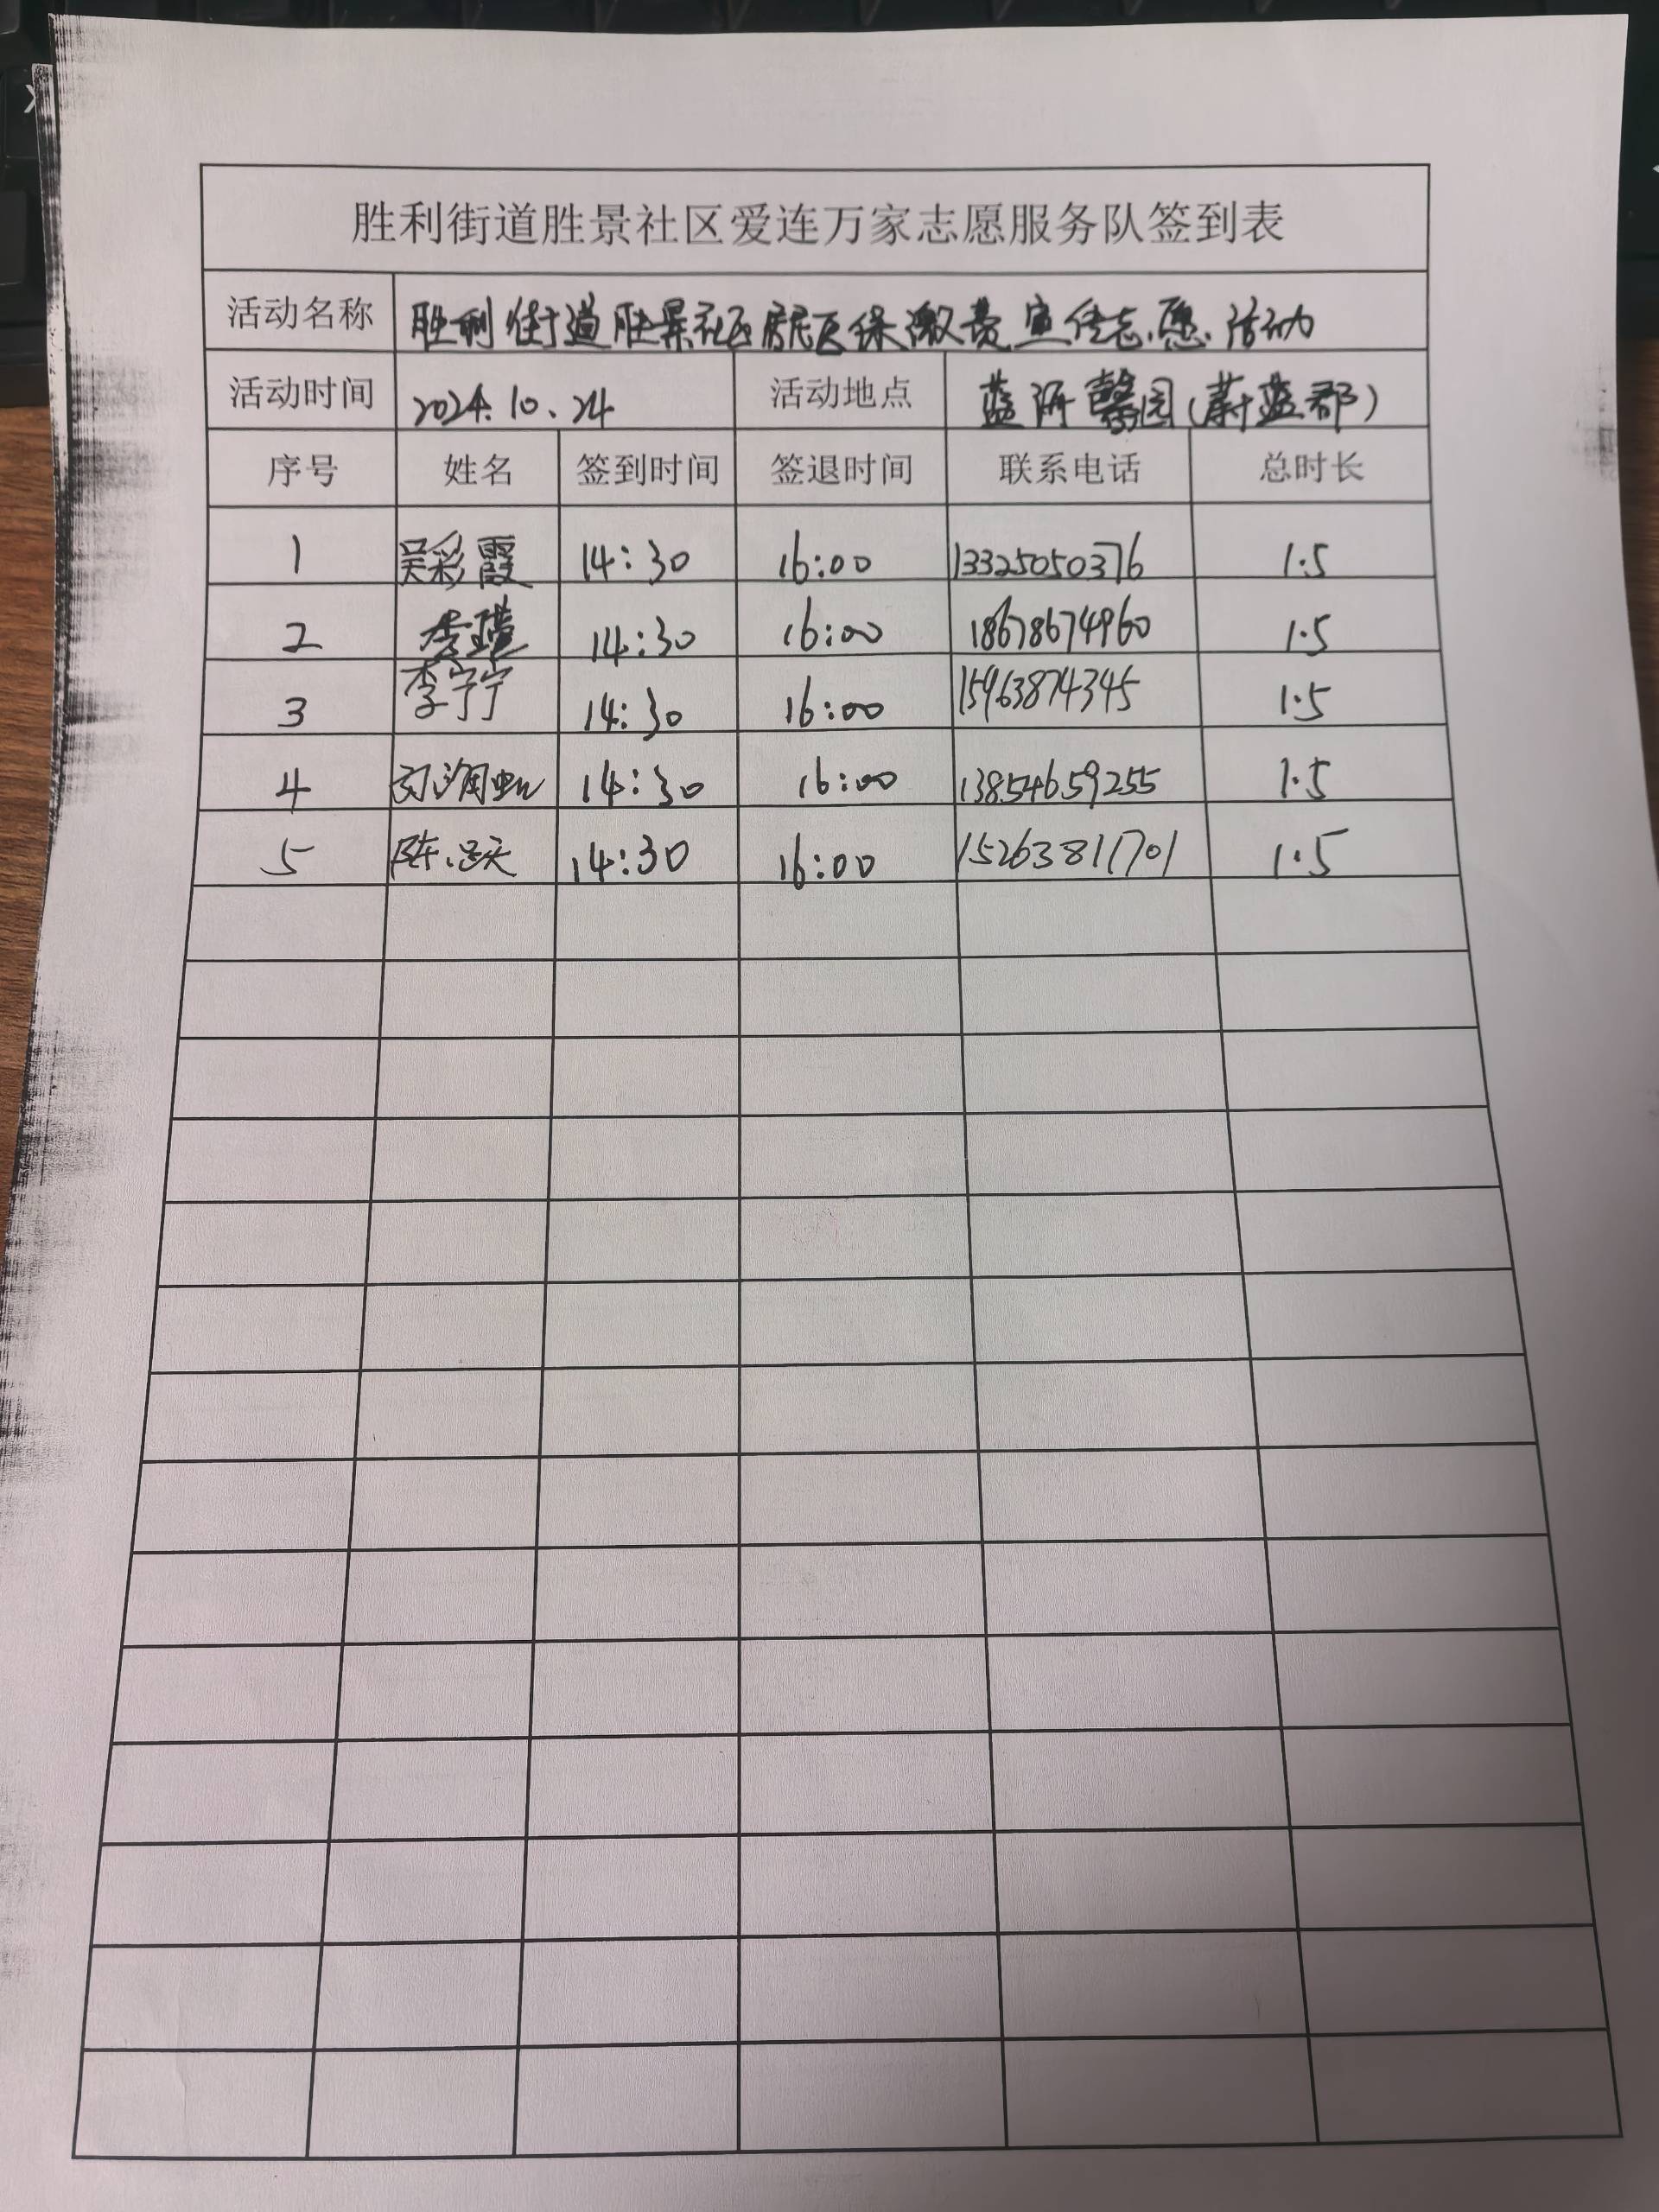 胜利街道胜景社区爱连万家志愿服务队签到表
活动名称 胜利街道胜景社区居民医保缴费宣传志愿活动
活动时间 2024.10.24 活动地点 蓝海馨园(蔚蓝郡)
序号 姓名 签到时间 签退时间 联系电话 总时长
1 吴彩霞 14:30 16:00 13325050376 1.5
2 李瑾 14:30 16:00 18678674960 1.5
3 李宁宁 14:30 16:00 15963874345 1.5
4 14:30 16:00 13854659255 1.5
5 陈跃 14:30 16:00 15263811701 1.5